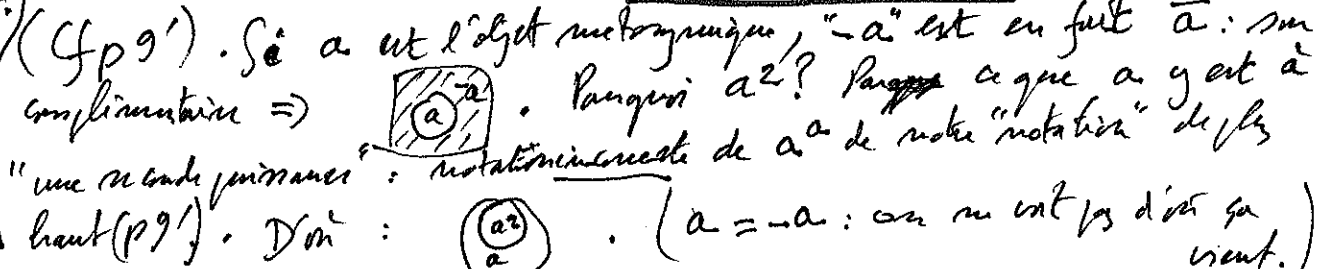 (Cf p9'). Si a est l'objet métonymique, "-a" est en fait a̅ : son
complémentaire => a -a . Pourquoi a² ? Parce que a y est à
"une seconde puissance" : notation incorrecte de aᵃ de notre "notation" de plus
haut (p9'). D'où : a² a . (a = -a : on ne voit pas d'où ça
vient.)